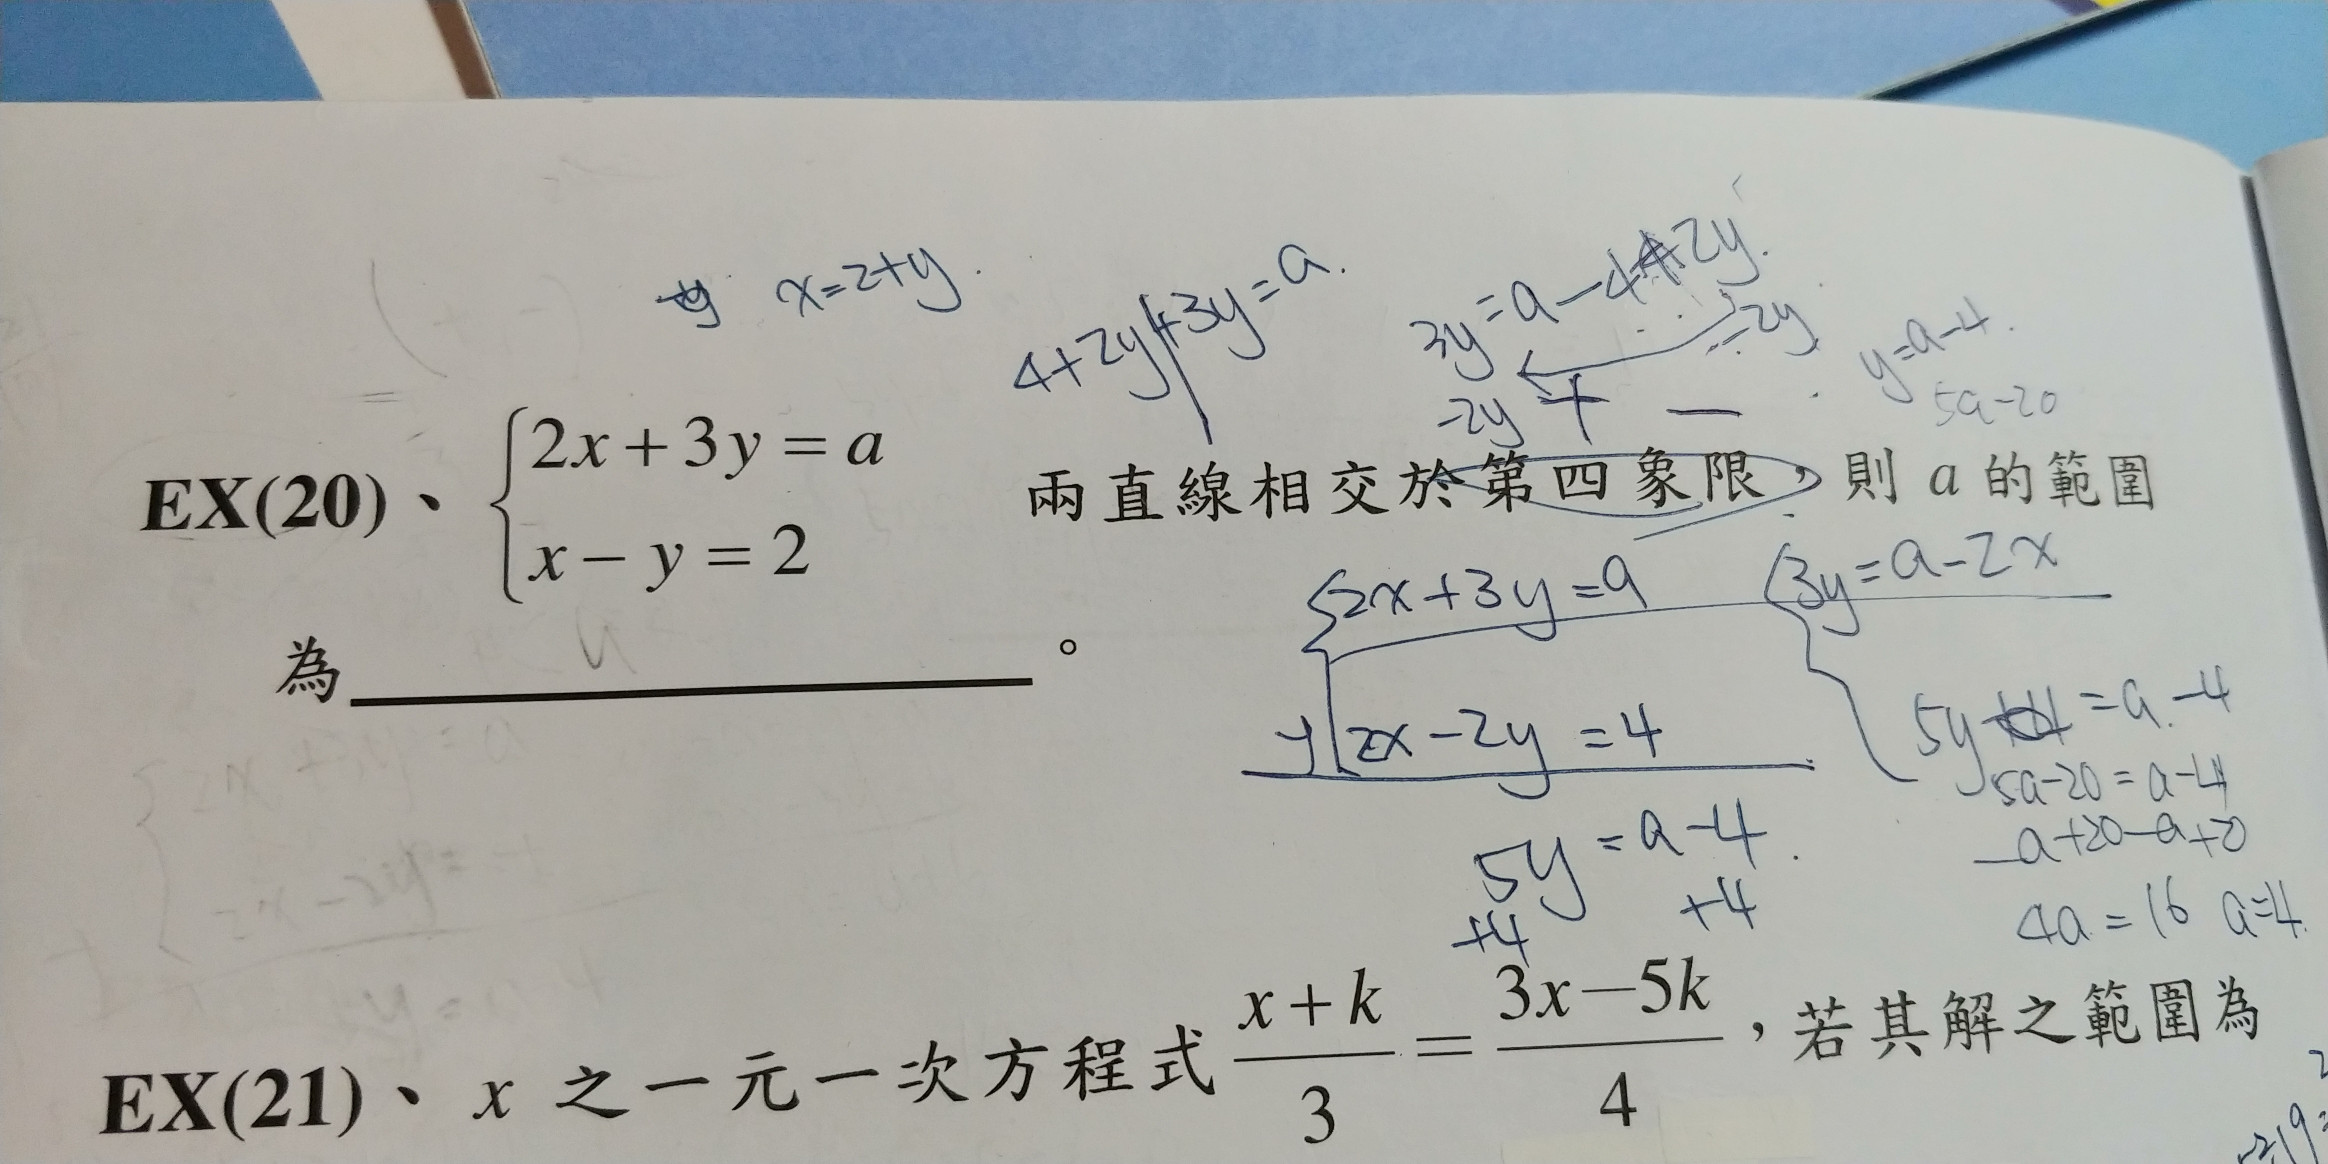 x=2+y.
4+2y+3y=a.
3y=a-4+2y.
-2y
-2y + -
y=a-4.
5a-20
EX(20)、 { 2x+3y=a
x-y=2
兩直線相交於第四象限，則 a 的範圍
為____________。
2x+3y=a
3y=a-2x
2x-2y=4
5y=a-4
5a-20=a-4
-a+20-a+20
4a=16 a=4.
5y=a-4.
+4 +4
EX(21)、 x 之一元一次方程式 (x+k)/3 = (3x-5k)/4 ，若其解之範圍為